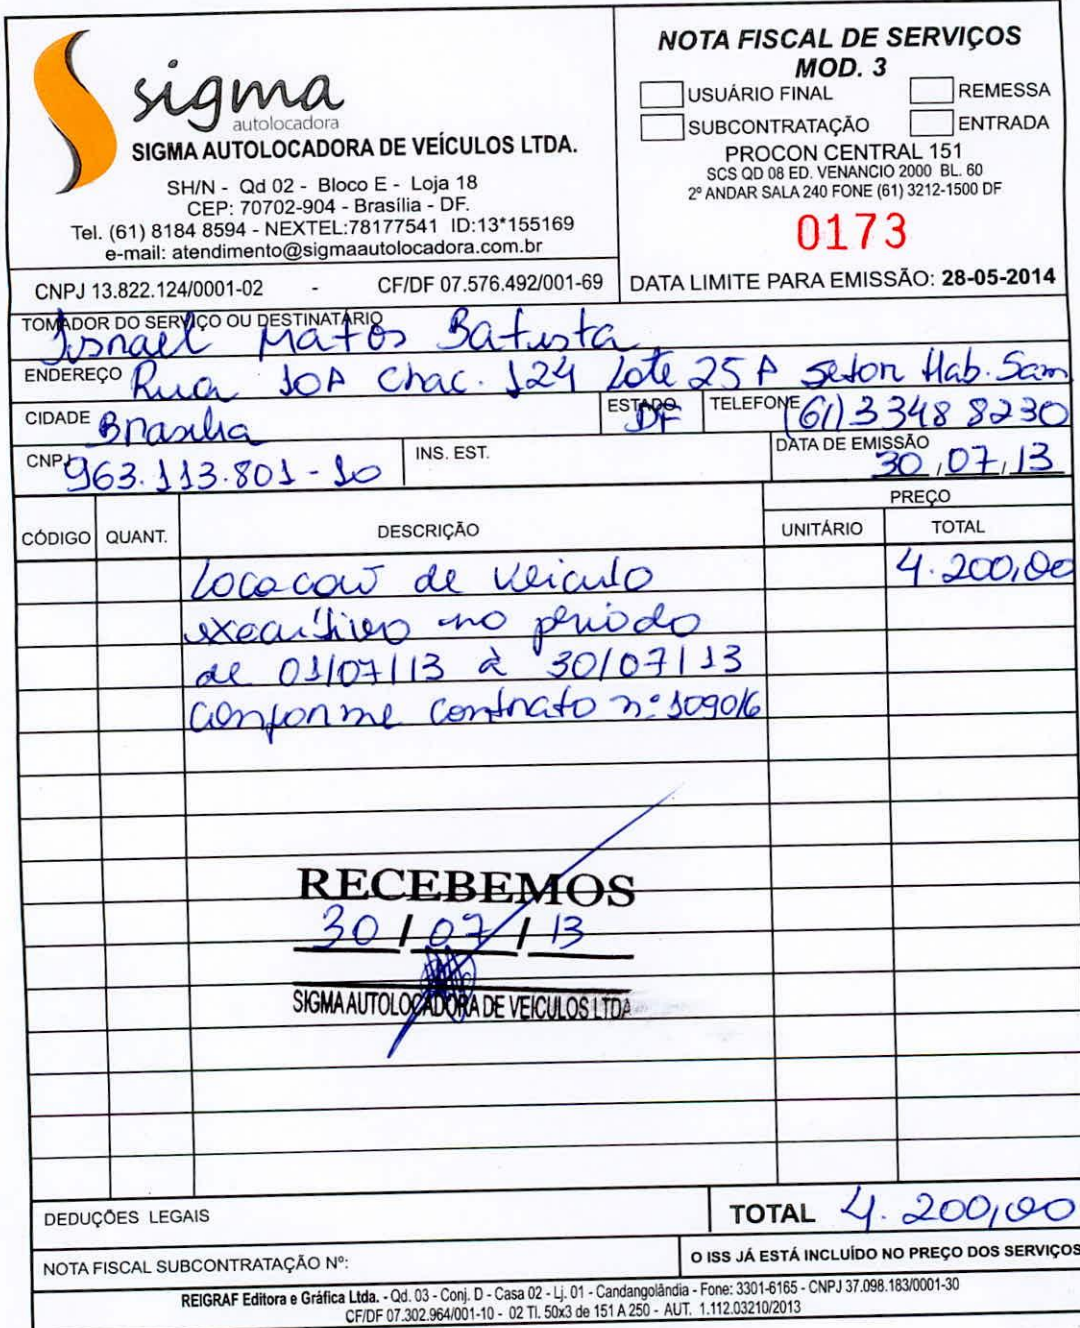 sigma
autolocadora
SIGMA AUTOLOCADORA DE VEÍCULOS LTDA.
SH/N - Qd 02 - Bloco E - Loja 18
CEP: 70702-904 - Brasília - DF.
Tel. (61) 8184 8594 - NEXTEL:78177541 ID:13*155169
e-mail: atendimento@sigmaautolocadora.com.br
CNPJ 13.822.124/0001-02 - CF/DF 07.576.492/001-69
NOTA FISCAL DE SERVIÇOS
MOD. 3
USUÁRIO FINAL REMESSA
SUBCONTRATAÇÃO ENTRADA
PROCON CENTRAL 151
SCS QD 08 ED. VENANCIO 2000 BL. 60
2º ANDAR SALA 240 FONE (61) 3212-1500 DF
0173
DATA LIMITE PARA EMISSÃO: 28-05-2014
TOMADOR DO SERVIÇO OU DESTINATÁRIO
Israel Matos Batista
ENDEREÇO Rua 10A Chac. 124 Lote 25A Setor Hab. Sam
CIDADE Brasilia ESTADO DF TELEFONE (61) 3348 8230
CNPJ 963.113.801-10 INS. EST. DATA DE EMISSÃO 30,07,13
CÓDIGO QUANT. DESCRIÇÃO PREÇO
UNITÁRIO TOTAL
Locacao de veiculo 4.200,00
executivo no periodo
de 01/07/13 à 30/07/13
conforme contrato nº 109016
RECEBEMOS
30 / 07 / 13
SIGMA AUTOLOCADORA DE VEICULOS LTDA
DEDUÇÕES LEGAIS TOTAL 4.200,00
NOTA FISCAL SUBCONTRATAÇÃO Nº: O ISS JÁ ESTÁ INCLUÍDO NO PREÇO DOS SERVIÇOS
REIGRAF Editora e Gráfica Ltda. - Qd. 03 - Conj. D - Casa 02 - Lj. 01 - Candangolândia - Fone: 3301-6165 - CNPJ 37.098.183/0001-30
CF/DF 07.302.964/001-10 - 02 Tl. 50x3 de 151 A 250 - AUT. 1.112.03210/2013